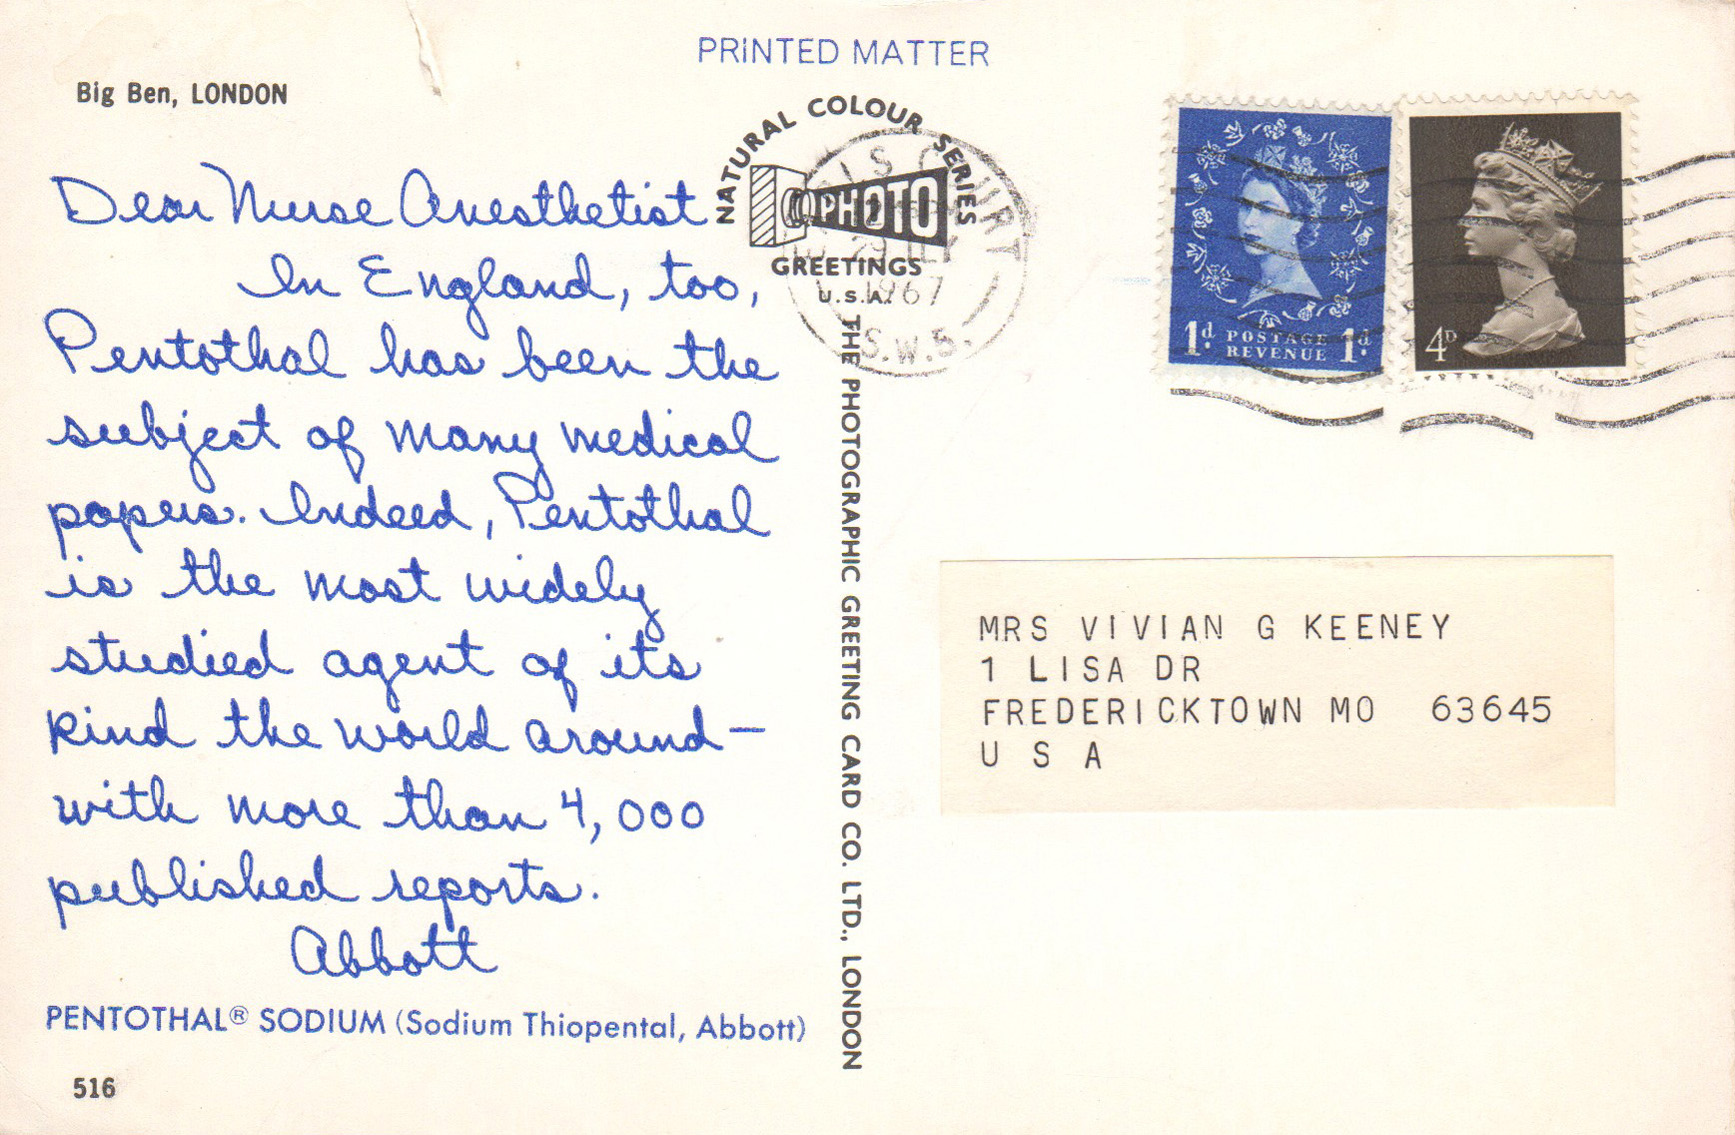 PRINTED MATTER
Big Ben, LONDON
Dear Nurse Anesthetist
In England, too,
Pentothal has been the
subject of many medical
papers. Indeed, Pentothal
is the most widely
studied agent of its
kind the world around—
with more than 4,000
published reports.
Abbott
PENTOTHAL® SODIUM (Sodium Thiopental, Abbott)
516
NATURAL COLOUR SERIES
PHOTO
GREETINGS
U.S.A.
THE PHOTOGRAPHIC GREETING CARD CO. LTD., LONDON
1967
S.W.5.
1d. POSTAGE 1d.
REVENUE
4D
MRS VIVIAN G KEENEY
1 LISA DR
FREDERICKTOWN MO 63645
U S A